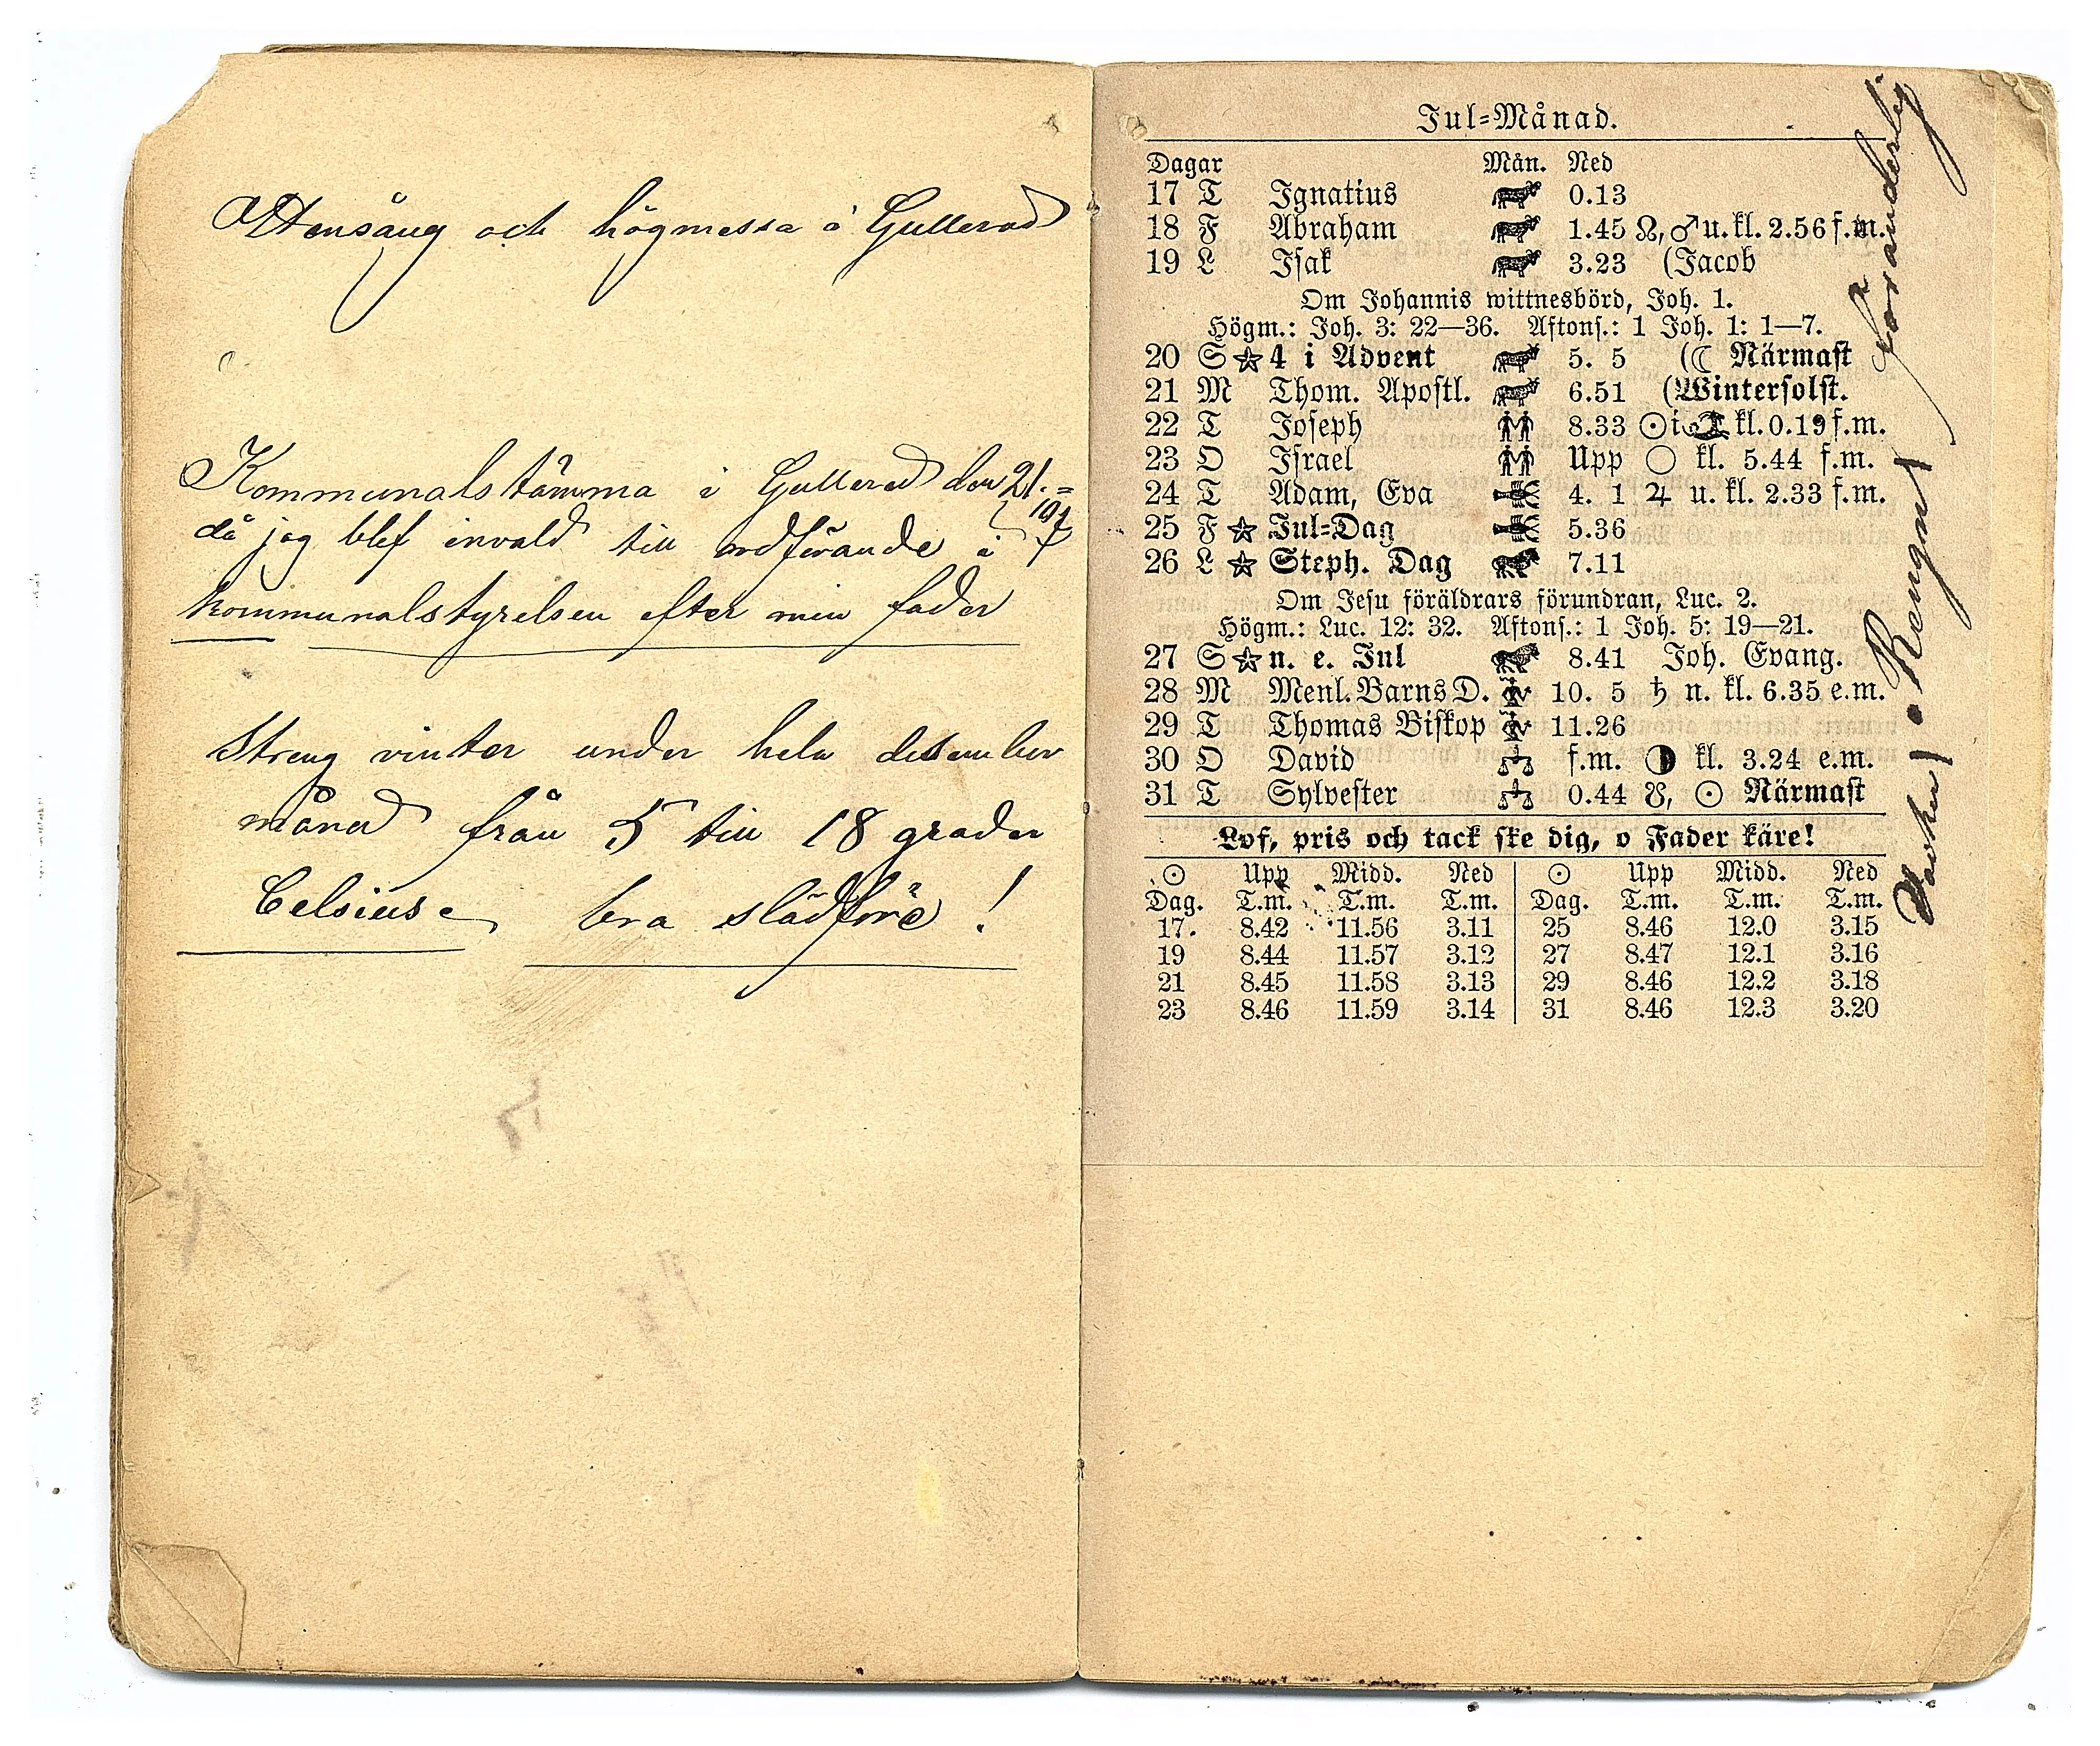 Ottensång och högmessa i Gullered
Kommunalstämma i Gullered den 21.=
då jag blef invald till ordförande i
kommunalstyrelsen efter min fader
Streng vinter under hela december
månad från 5 till 18 grader
Celsius bra slädföre!
Jul=Månad.
Dagar Mån. Ned
17 T Ignatius 0.13
18 F Abraham 1.45 ☊, ♂ u. kl. 2.56 f.m.
19 L Isak 3.23 (Jacob
Om Johannis wittnesbörd, Joh. 1.
Högm.: Joh. 3: 22—36. Aftons.: 1 Joh. 1: 1—7.
20 S ☆ 4 i Advent 5. 5 (☾ Närmast
21 M Thom. Apostl. 6.51 (Wintersolst.
22 T Joseph 8.33 ☉ i ♑ kl. 0.19 f.m.
23 O Israel Upp ○ kl. 5.44 f.m.
24 T Adam, Eva 4. 1 ♃ u. kl. 2.33 f.m.
25 F ☆ Jul=Dag 5.36
26 L ☆ Steph. Dag 7.11
Om Jesu föräldrars förundran, Luc. 2.
Högm.: Luc. 12: 32. Aftons.: 1 Joh. 5: 19—21.
27 S ☆ n. e. Jul 8.41 Joh. Evang.
28 M Menl. Barns D. 10. 5 ♄ n. kl. 6.35 e.m.
29 T Thomas Biskop 11.26
30 O David f.m. ◑ kl. 3.24 e.m.
31 T Sylvester 0.44 ☋, ☉ Närmast
Lof, pris och tack ske dig, o Fader käre!
☉ Upp Midd. Ned ☉ Upp Midd. Ned
Dag. T.m. T.m. T.m. Dag. T.m. T.m. T.m.
17. 8.42 11.56 3.11 25 8.46 12.0 3.15
19 8.44 11.57 3.12 27 8.47 12.1 3.16
21 8.45 11.58 3.13 29 8.46 12.2 3.18
23 8.46 11.59 3.14 31 8.46 12.3 3.20
Vacker o Rengnit Föränderlig